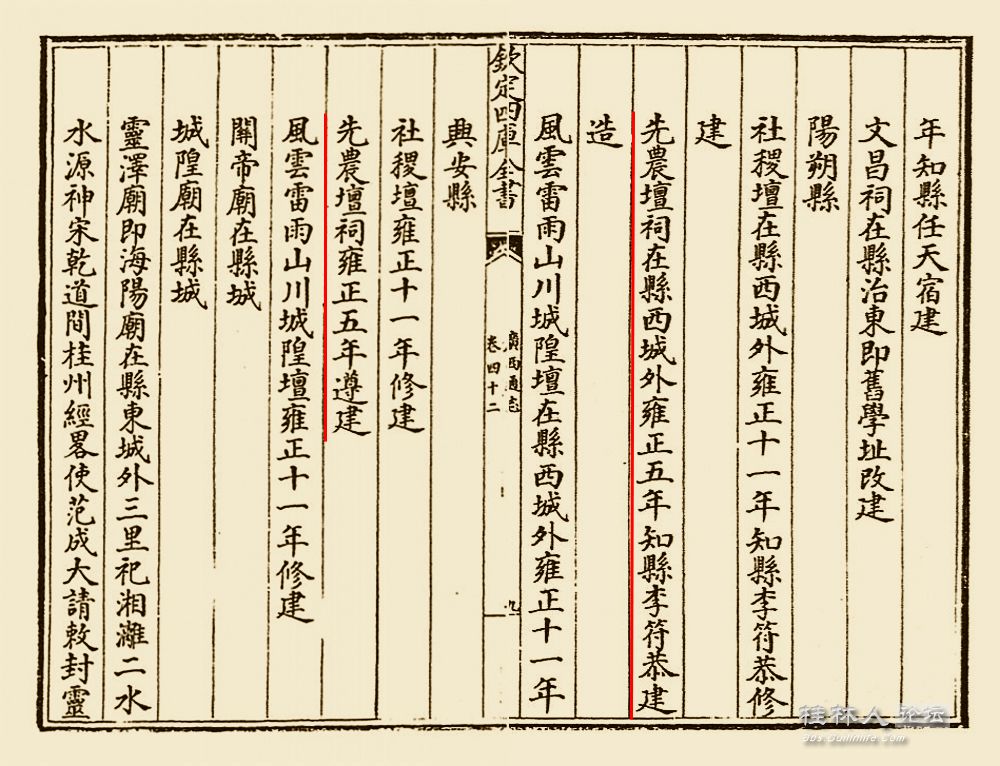 年知縣任天宿建
文昌祠在縣治東即舊學址改建
陽朔縣
社稷壇在縣西城外雍正十一年知縣李符恭修
建
先農壇祠在縣西城外雍正五年知縣李符恭建
造
風雲雷雨山川城隍壇在縣西城外雍正十一年
欽定四庫全書
廣西通志
卷四十二
九
典安縣
社稷壇雍正十一年修建
先農壇祠雍正五年遵建
風雲雷雨山川城隍壇雍正十一年修建
關帝廟在縣城
城隍廟在縣城
靈澤廟即海陽廟在縣東城外三里祀湘灕二水
水源神宋乾道間桂州經畧使范成大請敕封靈
桂林人 论坛
bbs.guilinlife.com